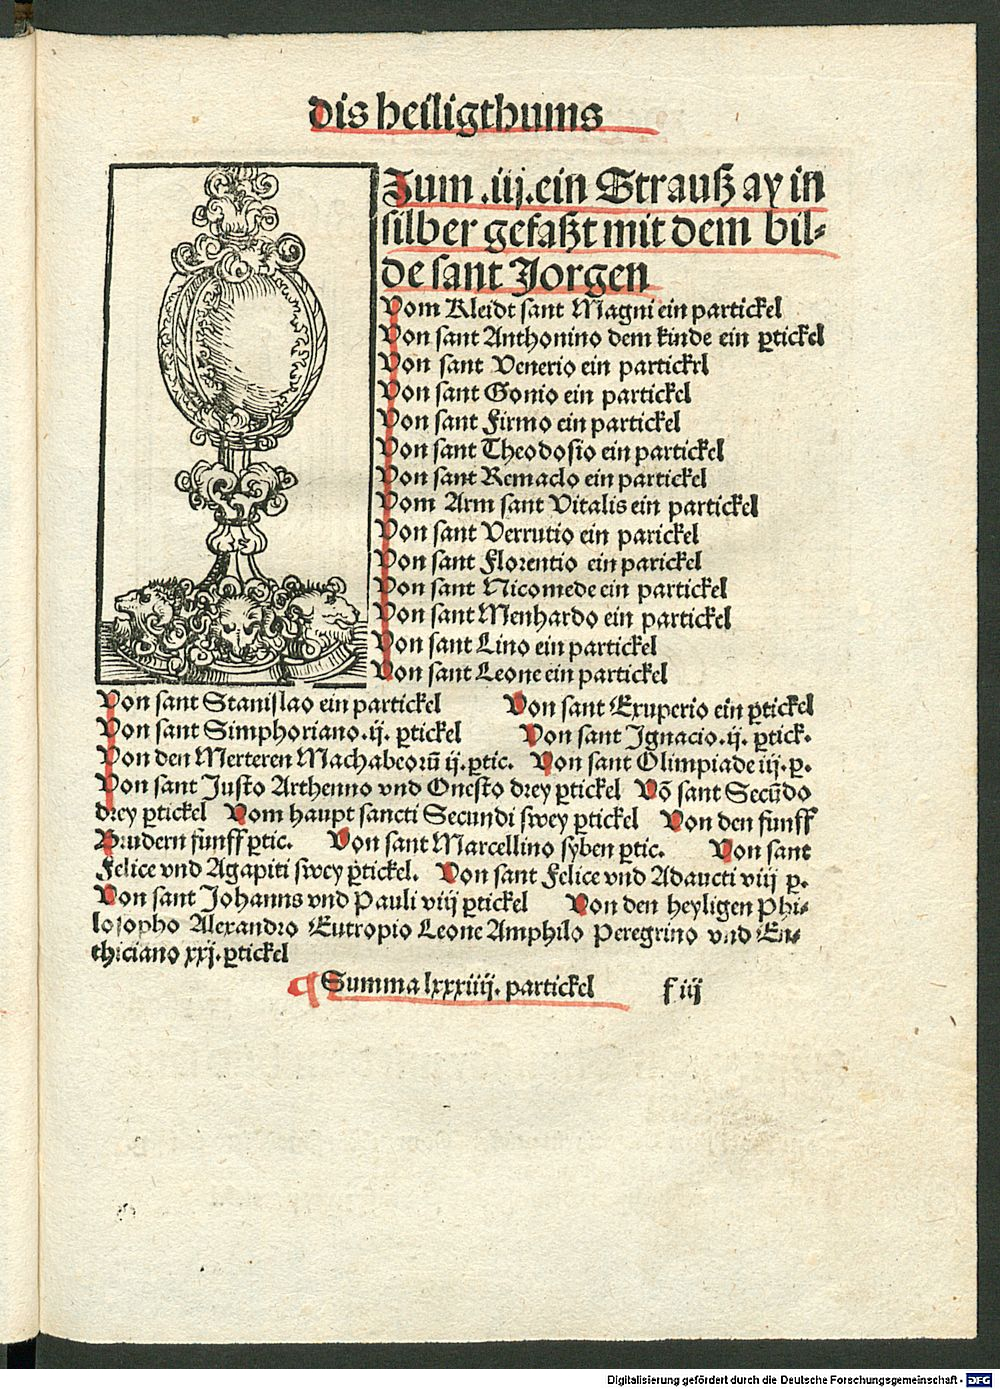 dis heiligthums
Zum .iij. ein Strauß ay in
silber gefaßt mit dem bil⸗
de sant Jorgen
Vom Kleidt sant Magni ein partickel
Von sant Anthonino dem kinde ein ꝑtickel
Von sant Venerio ein partickrl
Von sant Gonio ein partickel
Von sant Firmo ein partickel
Von sant Theodosio ein partickel
Von sant Remaclo ein partickel
Vom Arm sant Vitalis ein partickel
Von sant Verrutio ein parickel
Von sant Florentio ein parickel
Von sant Nicomede ein partickel
Von sant Menhardo ein partickel
Von sant Lino ein partickel
Von sant Leone ein partickel
Von sant Stanislao ein partickel Von sant Exuperio ein ꝑtickel
Von sant Simphoriano .ij. ꝑtickel Von sant Ignacio .ij. ꝑtick.
Von den Merteren Machabeorū ij. ꝑtic. Von sant Olimpiade iij .ꝑ.
Von sant Justo Arthenno vnd Onesto drey ꝑtickel Vō sant Secūdo
drey ꝑtickel Vom haupt sancti Secundi swey ꝑtickel Von den funff
Brudern funff ꝑtic. Von sant Marcellino syben ꝑtic. Von sant
Felice vnd Agapiti swey ꝑtickel. Von sant Felice vnd Adaucti viij ꝑ.
Von sant Johanns vnd Pauli viij ꝑtickel Von den heyligen Phi⸗
losopho Alexandro Eutropio Leone Amphilo Peregrino vnd Eu⸗
thiciano xxj. ꝑtickel
¶ Summa lxxxiiij. partickel f iij
Digitalisierung gefördert durch die Deutsche Forschungsgemeinschaft - DFG